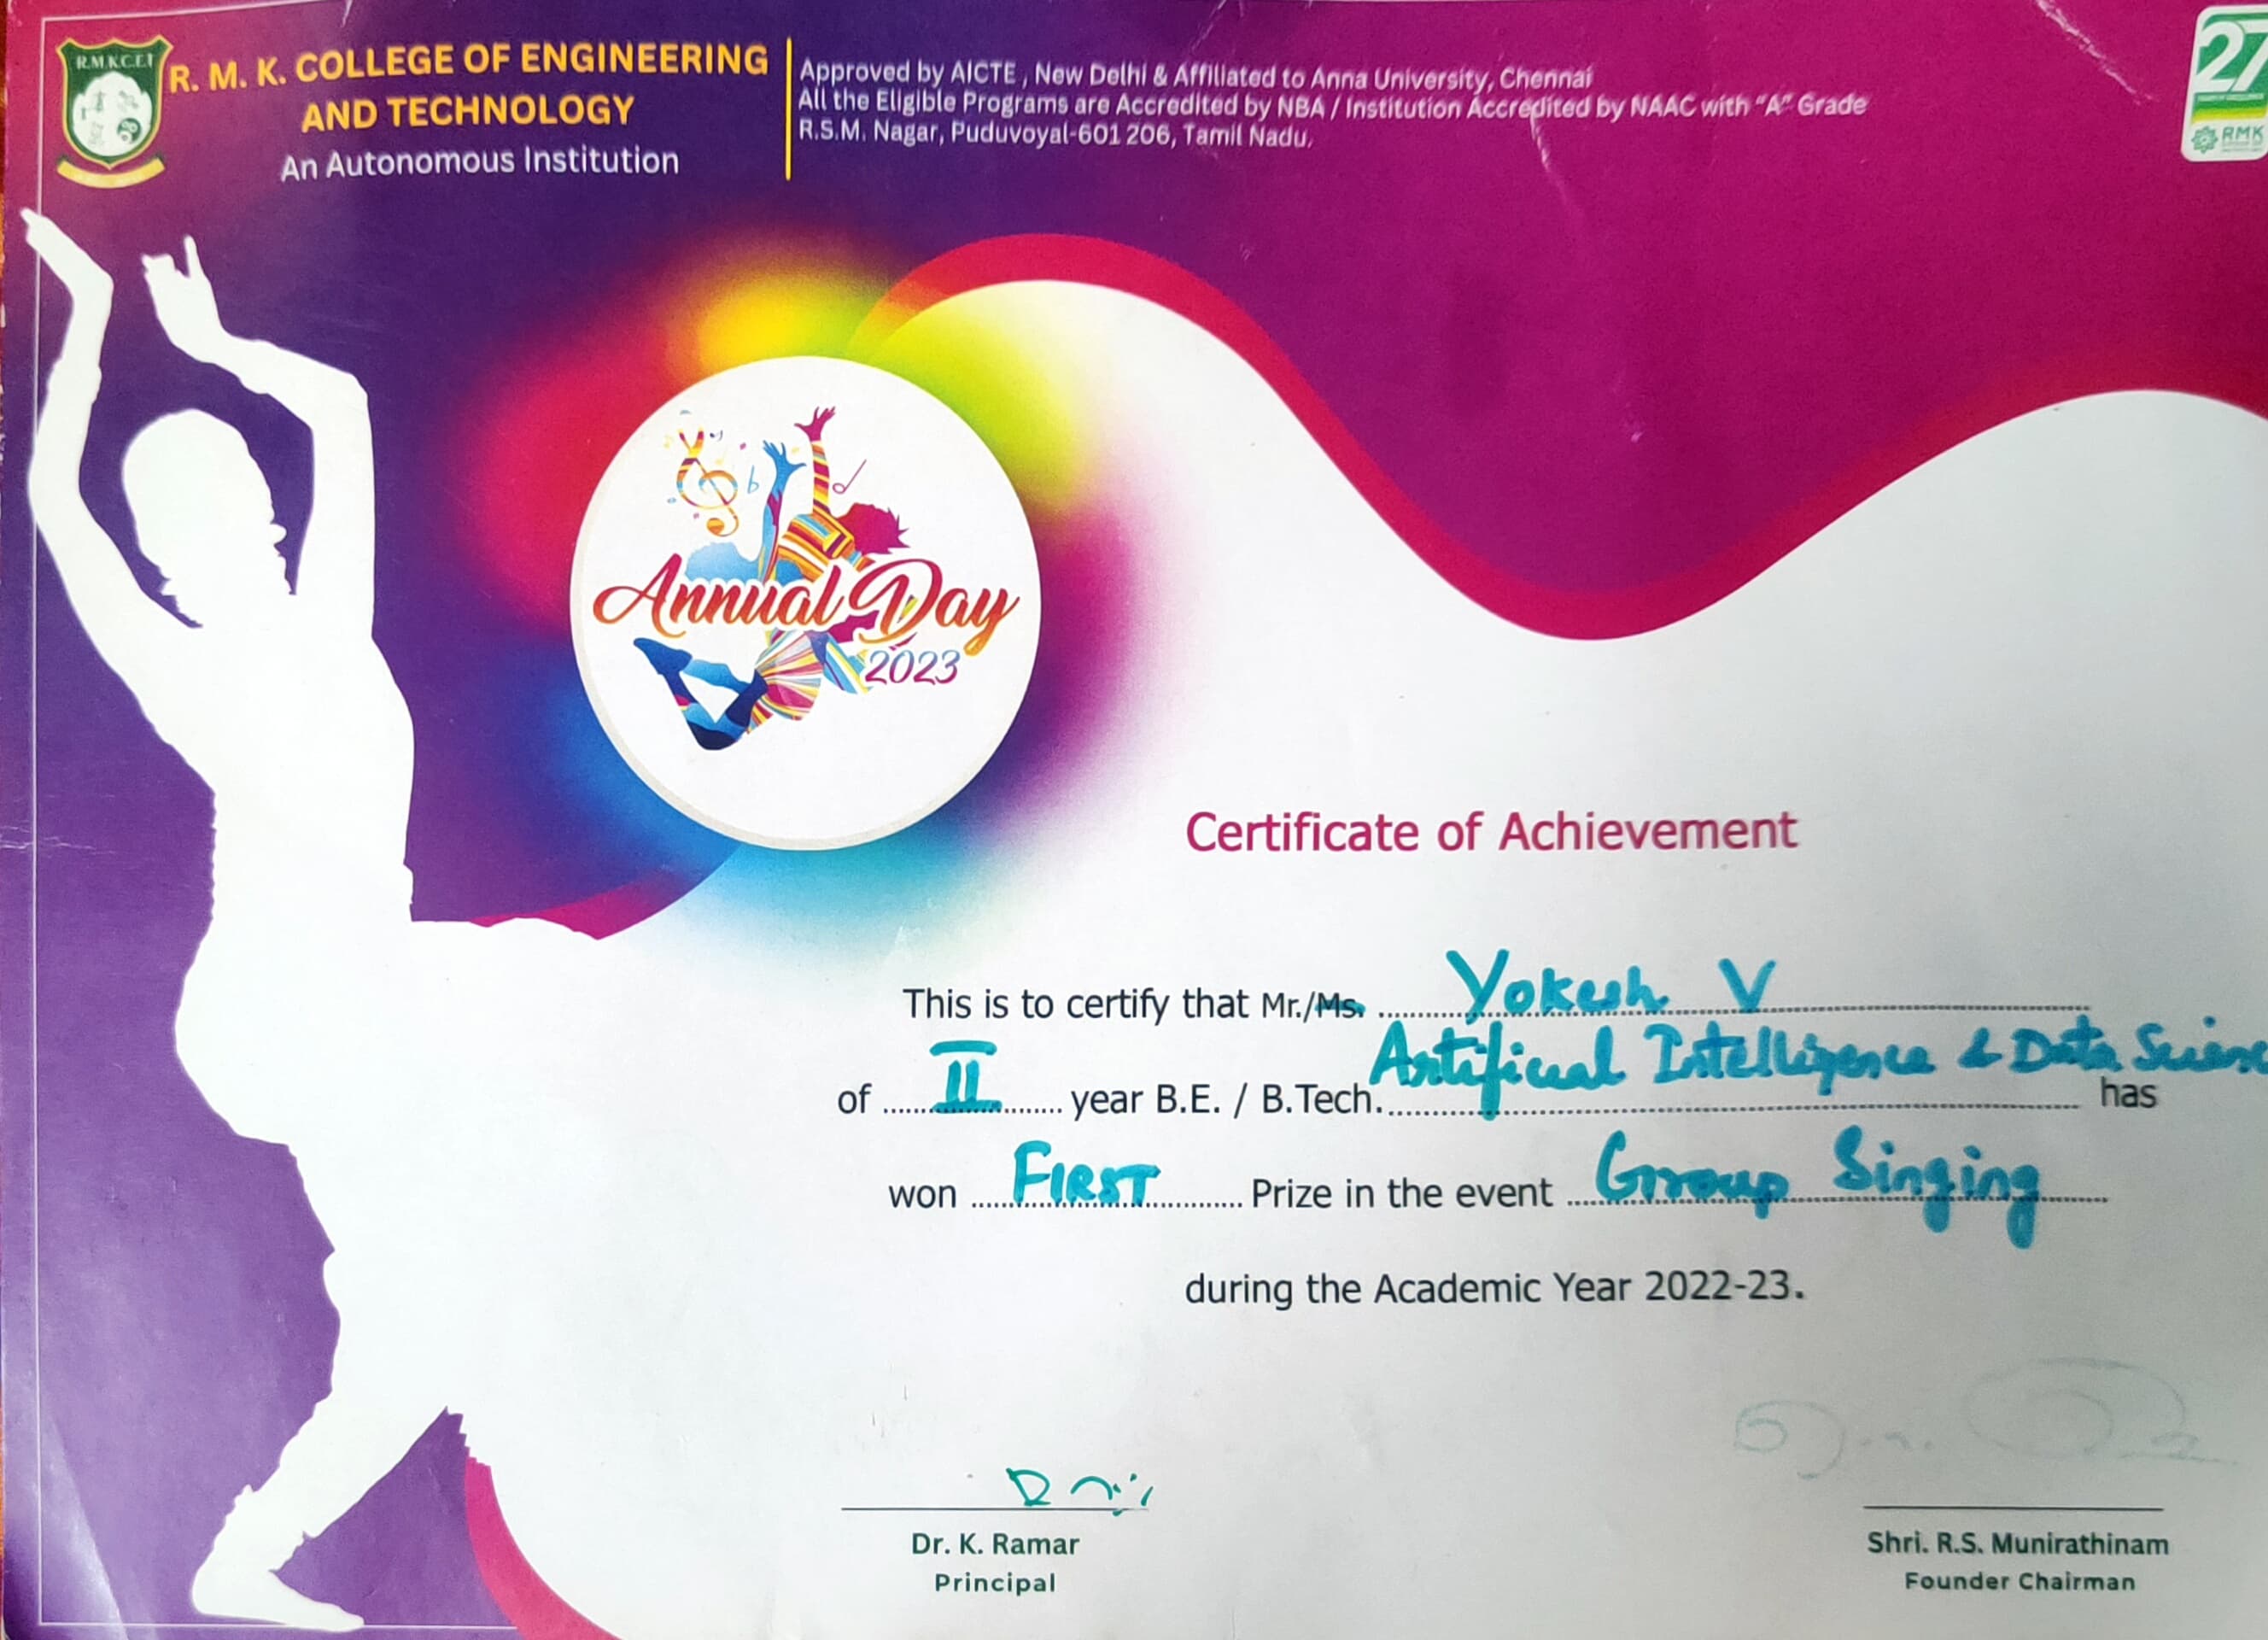 R.M.K.C.E.T
R. M. K. COLLEGE OF ENGINEERING
AND TECHNOLOGY
An Autonomous Institution
Approved by AICTE , New Delhi & Affiliated to Anna University, Chennai
All the Eligible Programs are Accredited by NBA / Institution Accredited by NAAC with "A" Grade
R.S.M. Nagar, Puduvoyal-601 206, Tamil Nadu.
27
RMK
Annual Day
2023
Certificate of Achievement
This is to certify that Mr./Ms. Yokesh V
of II year B.E. / B.Tech. Artificial Intelligence & Data Science has
won FIRST Prize in the event Group Singing
during the Academic Year 2022-23.
Dr. K. Ramar
Principal
Shri. R.S. Munirathinam
Founder Chairman